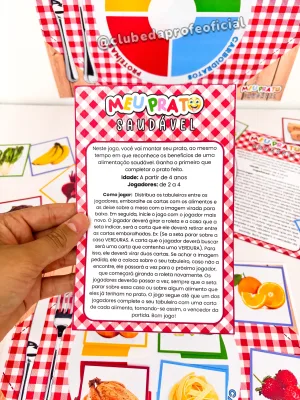 @clubedaprofeoficial
PROTEÍNAS
CARBOIDRATOS
MEU PRATO
SAUDÁVEL
Neste jogo, você vai montar seu prato, ao mesmo
tempo em que reconhece os benefícios de uma
alimentação saudável. Ganha o primeiro que
completar o prato feito.
Idade: A partir de 4 anos
Jogadores: de 2 a 4
Como jogar: Distribua os tabuleiros entre os
jogadores, embaralhe os cartas com os alimentos e
as deixe sobre a mesa com a imagem virada para
baixo. Em seguida, inicie o jogo com o jogador mais
novo. O jogador deverá girar a roleta e a casa que a
seta indicar, será a carta que ele deverá retirar entre
as cartas embaralhadas. Ex: (Se a seta parar sobre a
casa VERDURAS. A carta que o jogador deverá buscar
será uma carta que contenha uma VERDURA). Para
isso, ele deverá virar duas cartas. Se achar a imagem
pedida, ele a coloca sobre o seu tabuleiro, caso não a
encontre, ele passará a vez para o próximo jogador,
que começará girando a roleta novamente. Os
jogadores deverão passar a vez, sempre que a seta
parar sobre essa casa ou sobre algum alimento que
eles já tenham no prato. O jogo segue até que um dos
jogadores complete o seu tabuleiro com uma carta
de cada alimento, tornando-se assim, o vencedor da
partida. Bom jogo!
MEU PRATO